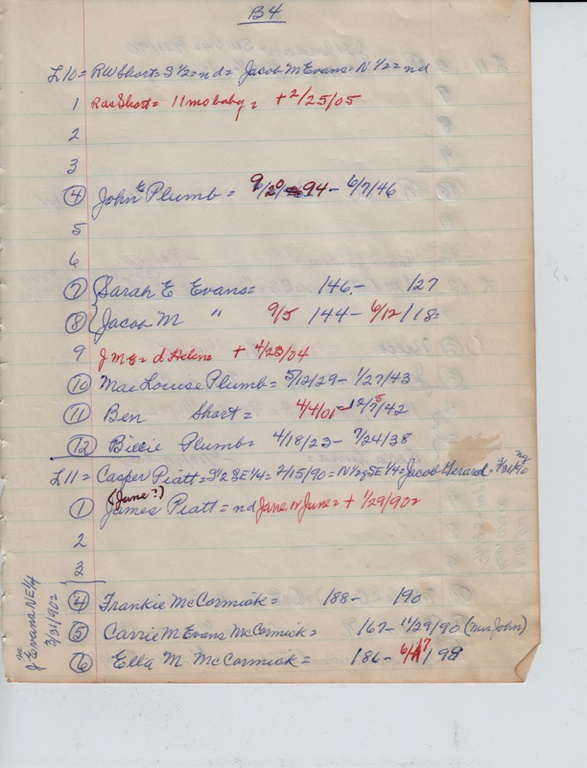 B4
L10 = RW Short = S 1/2 = nd = Jacob M Evans = N 1/2 = nd
1 Ras Short = 11 mo baby = + 2/25/05
2
3
4 John E Plumb = 9/20 94 - 6/7/46
5
6
7 Sarah E Evans = 146 - 127
8 Jacob M " 9/5 144 - 6/12/18
9 J M E = d Helene + 4/23/04
10 Mae Louise Plumb = 5/12/29 - 1/27/43
11 Ben Short = 4/4/01 - 12/7/42
12 Billie Plumb = 4/18/23 - 7/24/38
L11 = Casper Piatt = S 1/2 SE 1/4 = 2/15/90 = N 1/2 SE 1/4 = Jacob Gerard = 3/31/90
(June?)
1 James Piatt = nd Jane or June = + 1/29/90 =
2
3
4 Frankie McCormick = 188 - 190
5 Carrie M Evans McCormick = 167 - 11/29/90 (Mrs John)
6 Ella M. McCormick = 186 - 6/17/98
J M Evans NE 1/4
3/31/90 =